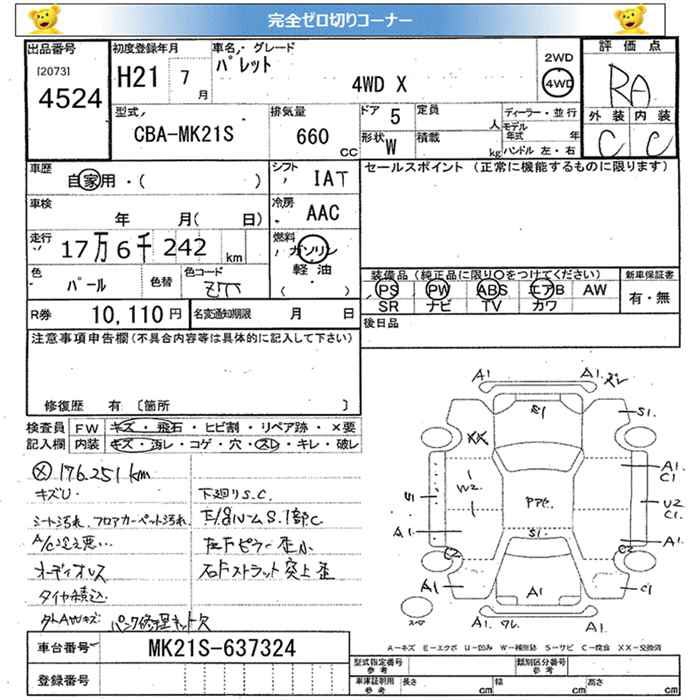 完全ゼロ切りコーナー
出品番号 初度登録年月 車名・グレード 評価点
[2073]
4524
H21 7月
パレット
4WD X
2WD
4WD
RA
型式 CBA-MK21S
排気量 660 CC
ドア 5 定員 人
形状 W 積載 kg
ディーラー・並行
モデル年式 年
ハンドル 左・右
外装 内装
C C
車歴 自家用・( )
シフト IAT
セールスポイント (正常に機能するものに限ります)
車検 年 月( 日)
冷房 AAC
走行 17万6千242 km
燃料 ガソリン
軽油
( )
色 パール 色替 色コード
装備品(純正品に限り〇をつけてください) 新車保証書
PS PW ABS エアB AW 有・無
SR ナビ TV カワ
R券 10,110円 名変通知期限 月 日
後日品
注意事項申告欄(不具合内容等は具体的に記入して下さい)
修復歴 有 [箇所 ]
検査員 FW キズ・飛石・ヒビ割・リペア跡・×要
記入欄 内装 キズ・汚レ・コゲ・穴・スレ・キレ・破レ
176.251km
キズU. 下廻りS.C.
シート汚れ、フロアカーペット汚れ
A/C冷え悪い
オーディオレス
右Fストラット突上歪
タイヤ積込
パンク修理キット欠
A1. A1.
S1.
XX
W2
S1
A1 C1
U2 C1.
A1. A1.
S1.
C2 C2
A1 A1 C1
A1.
車台番号 MK21S-637324
登録番号
A-キズ E-エクボ U-凹み W-補修跡 S-サビ C-腐食 XX-交換済
型式指定番号 参考 類別区分番号 参考
車庫証明用 参考 長さ cm 幅 cm 高さ cm